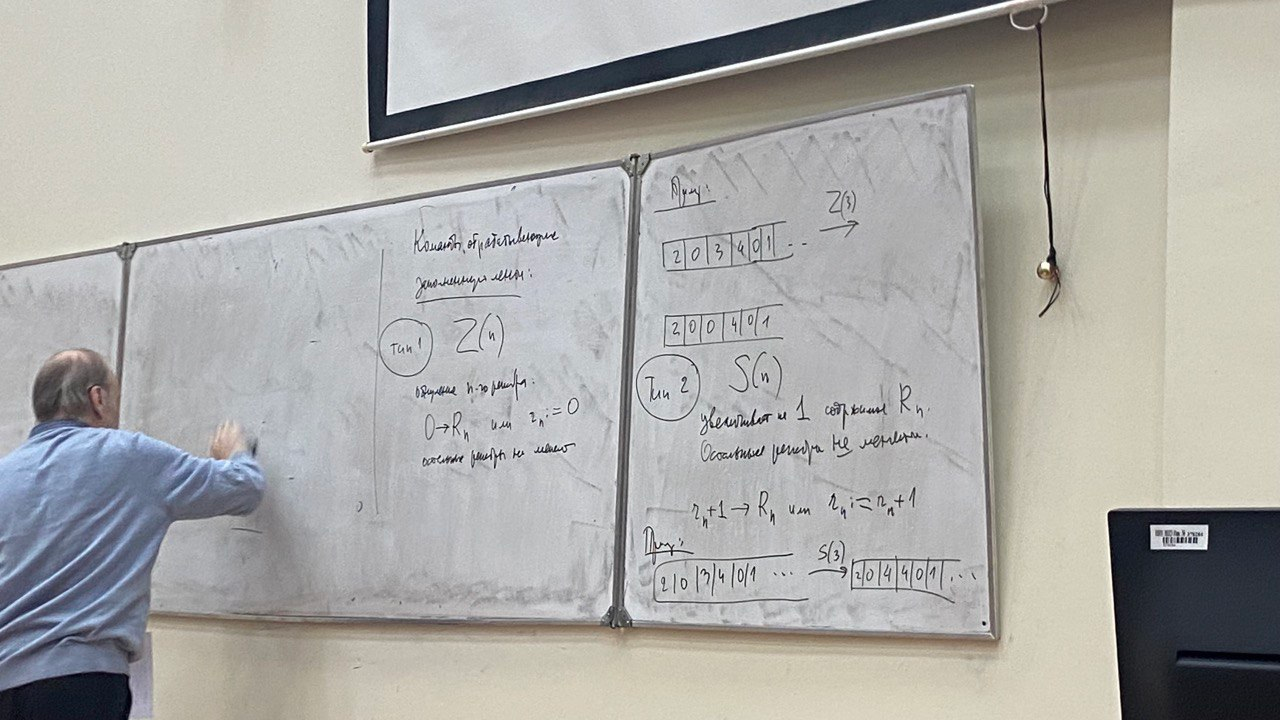 Команды, обрабатывающие
заполненную ленту:
Тип 1 Z(n)
обнуление n-го регистра:
0→Rₙ или rₙ:=0
остальные регистры не меняет
Пример:
2|0|3|4|0|1 .. Z(3) →
2|0|0|4|0|1
Тип 2 S(n)
увеличивает на 1 содержимое Rₙ.
Остальные регистры не меняет.
rₙ+1→Rₙ или rₙ:=rₙ+1
Пример:
2|0|3|4|0|1 ... S(3) → 2|0|4|4|0|1 ...